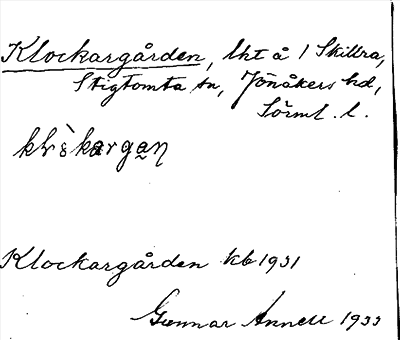 Klockargården, lht å 1 Skillra,
Stigtomta sn, Jönåkers hd,
Sörml. l.
Klockargården kb 1931
Gunnar Annell 1933